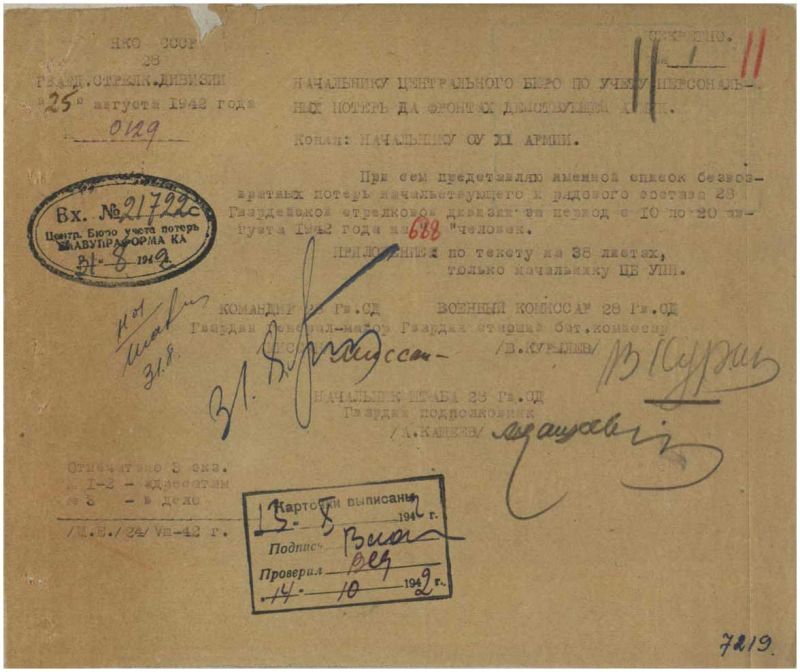 НКО СССР
28
ГВАРД.СТРЕЛК.ДИВИЗИИ
"25" августа 1942 года
0129
СЕКРЕТНО.
НАЧАЛЬНИКУ ЦЕНТРАЛЬНОГО БЮРО ПО УЧЕТУ ПЕРСОНАЛЬ-
НЫХ ПОТЕРЬ НА ФРОНТАХ ДЕЙСТВУЮЩЕЙ АРМИИ.
Копия: НАЧАЛЬНИКУ ОУ XI АРМИИ.
При сем представляю именной список безвоз-
вратных потерь начальствующего и рядового состава 28
Гвардейской стрелковой дивизии за период с 10 по 20 ав-
густа 1942 года на "688" человек.
ПРИЛОЖЕНИЕ: по тексту на 38 листах,
только начальнику ЦБ УПП.
Вх. № 21722с
Центр. Бюро учета потерь
ГЛАВУПРАФОРМА КА
31-8 1942
31.8.
КОМАНДИР 28 Гв.СД
Гвардии генерал-майор
ВОЕННЫЙ КОМИССАР 28 Гв.СД
Гвардии старший бат.комиссар
/В.КУРЫЛЕВ/
31.8.
НАЧАЛЬНИК ШТАБА 28 Гв.СД
Гвардии подполковник
/А.КАЩЕЕВ/
Отпечатано 3 экз.
№ 1-2 - адресатам
№ 3 - в дело
/М.Е./24/VIII-42 г.
Карточки выписаны
13- X 1942 г.
Подпись
Проверил
14- 10 1942 г.
7219.